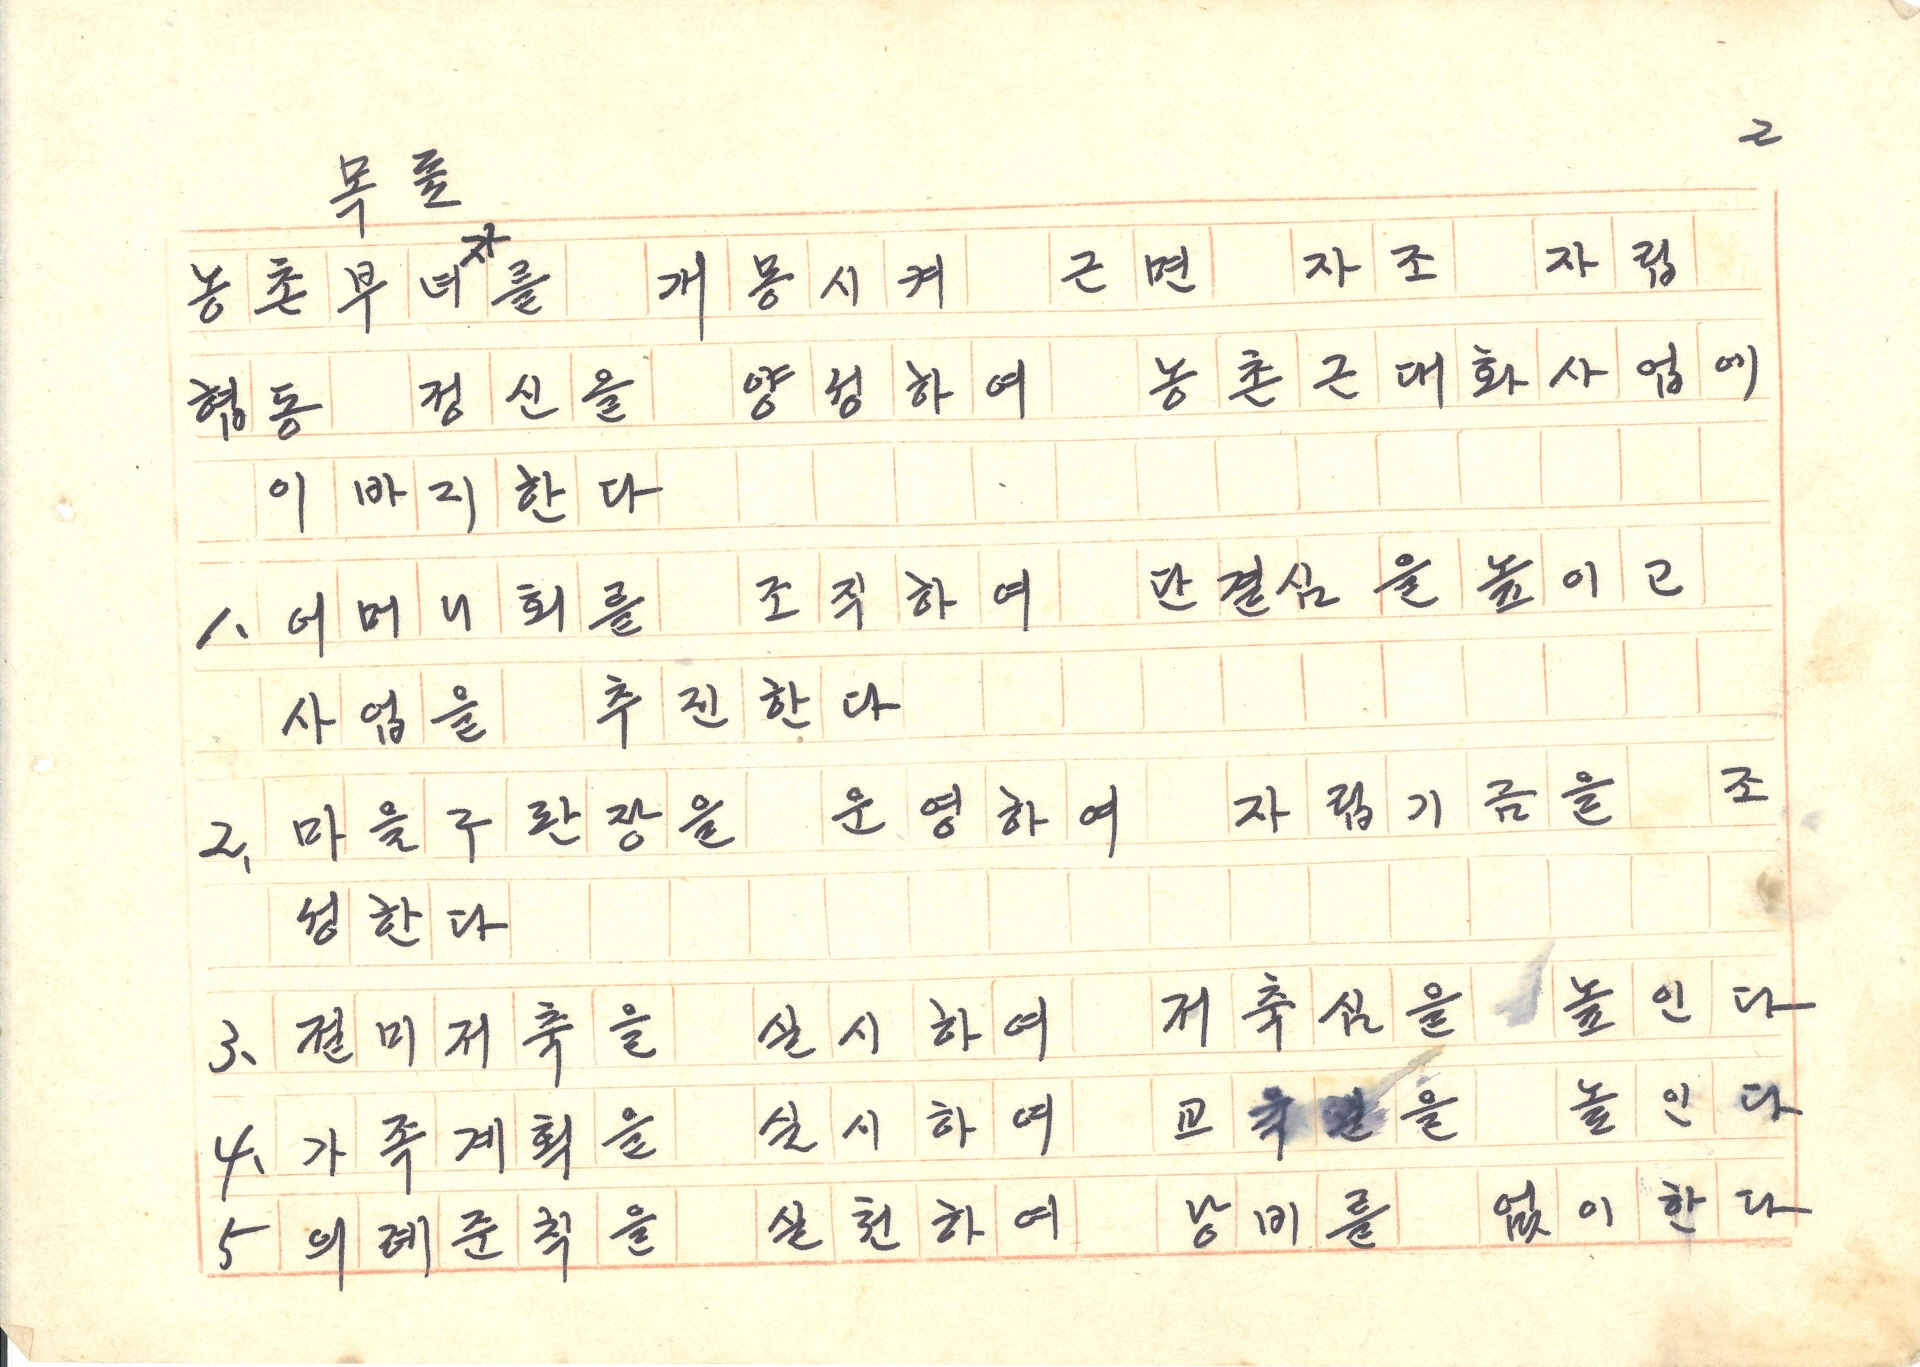 2
농촌부녀자를 개몽시켜 근면 자조 자립
협동 정신을 양성하여 농촌근대화사업에
이바지한다
1. 어머니회를 조직하여 단결심을높이고
사업을 추진한다
2. 마을구란장을 운영하여 자립기금을 조
성한다
3. 절미저축을 실시하여 저축심을 높인다
4. 가족계획을 실시하여 높인다
5 의례준칙을 실천하여 낭비를 없이한다